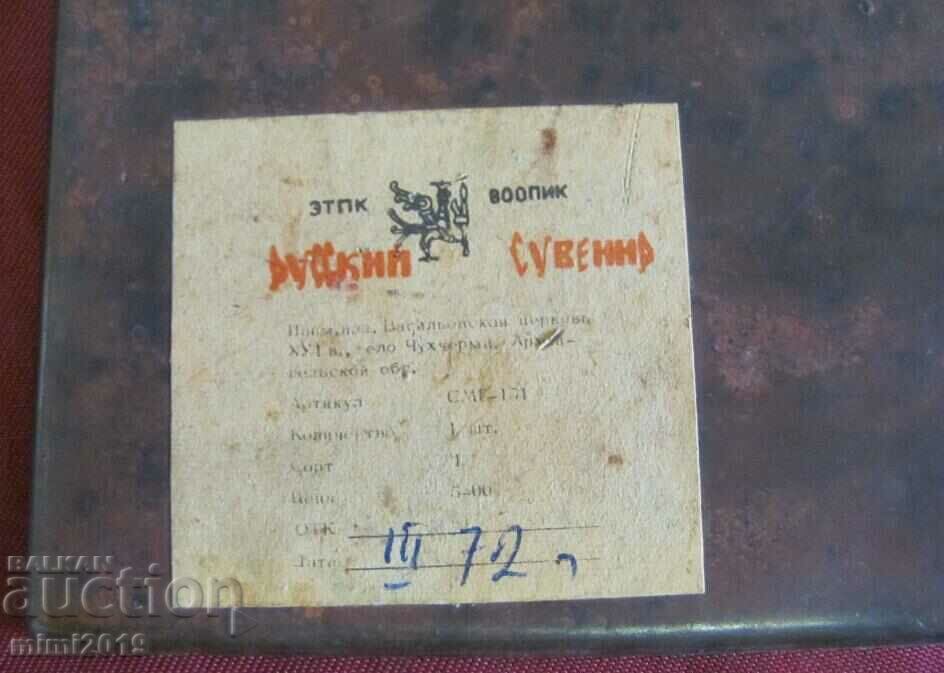 ЭТПК ВООПИК
РУССКИЙ СУВЕНИР
Васильевская церковь
XVI в., село Чухчерьма, Архан-
гельской обл.
Артикул СМГ-171
Количество 1 шт.
Сорт 1
Цена 5-00
ОТК
Дата III 72 г
BALKAN
auction
mimi2019